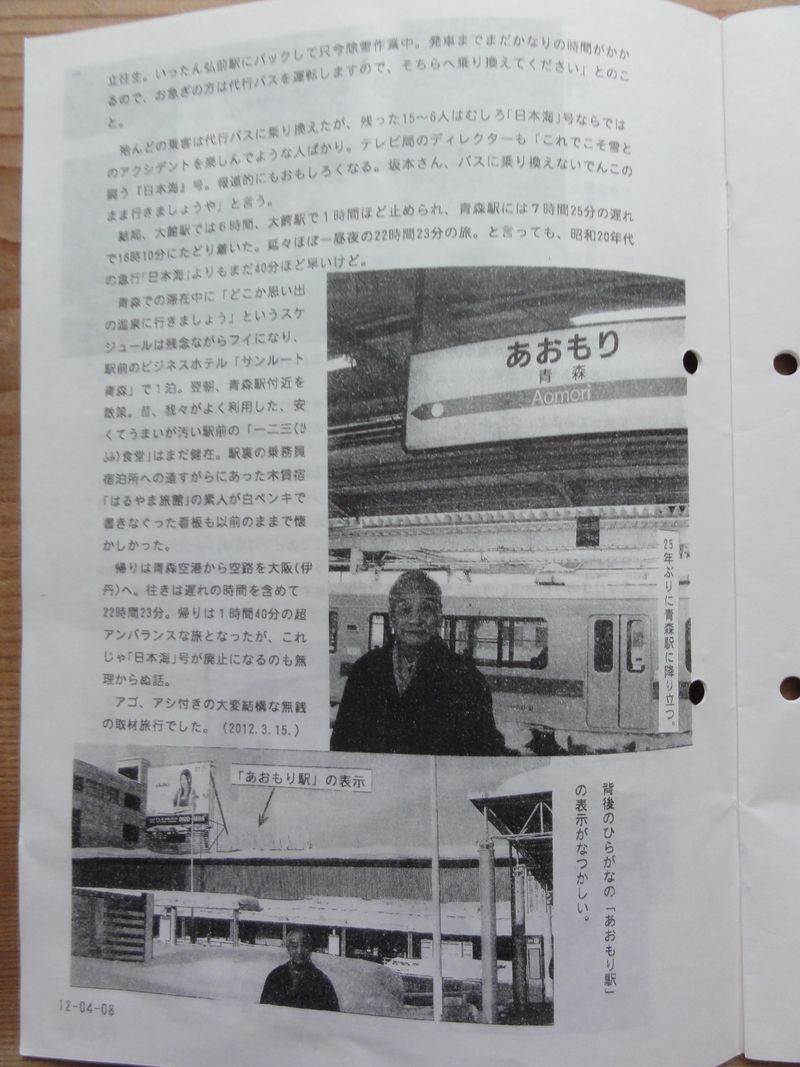 立往生。いったん弘前駅にバックして只今除雪作業中。発車までまだかなりの時間がかか
るので、お急ぎの方は代行バスを運転しますので、そちらへ乗り換えてください」とのこ
と。
殆んどの乗客は代行バスに乗り換えたが、残った15〜6人はむしろ｢日本海｣号ならでは
のアクシデントを楽しんでような人ばかり。テレビ局のディレクターも「これでこそ雪と
闘う『日本海』号。報道的にもおもしろくなる。坂本さん、バスに乗り換えないでんこの
まま行きましょうや」と言う。
結局、大館駅では６時間、大鰐駅で１時間ほど止められ、青森駅には７時間25分の遅れ
で16時10分にたどり着いた。延々ほぼ一昼夜の22時間23分の旅。と言っても、昭和20年代
の急行｢日本海｣よりもまだ40分ほど早いけど。
青森での滞在中に「どこか思い出
の温泉に行きましょう」というスケ
ジュールは残念ながらフイになり、
駅前のビジネスホテル「サンルート
青森」で１泊。翌朝、青森駅付近を
散策。昔、我々がよく利用した、安
くてうまいが汚い駅前の「一二三(ひ
ふみ)食堂」はまだ健在。駅裏の乗務員
宿泊所への道すがらにあった木賃宿
｢はるやま旅館｣の素人が白ペンキで
書きなぐった看板も以前のままで懐
かしかった。
帰りは青森空港から空路を大阪(伊
丹)へ。往きは遅れの時間を含めて
22時間23分。帰りは１時間40分の超
アンバランスな旅となったが、これ
じゃ｢日本海｣号が廃止になるのも無
理からぬ話。
アゴ、アシ付きの大変結構な無銭
の取材旅行でした。（2012.3.15.）
あおもり
青森
Aomori
25年ぶりに青森駅に降り立つ。
「あおもり駅」の表示
背後のひらがなの「あおもり駅」
の表示がなつかしい。
12-04-08